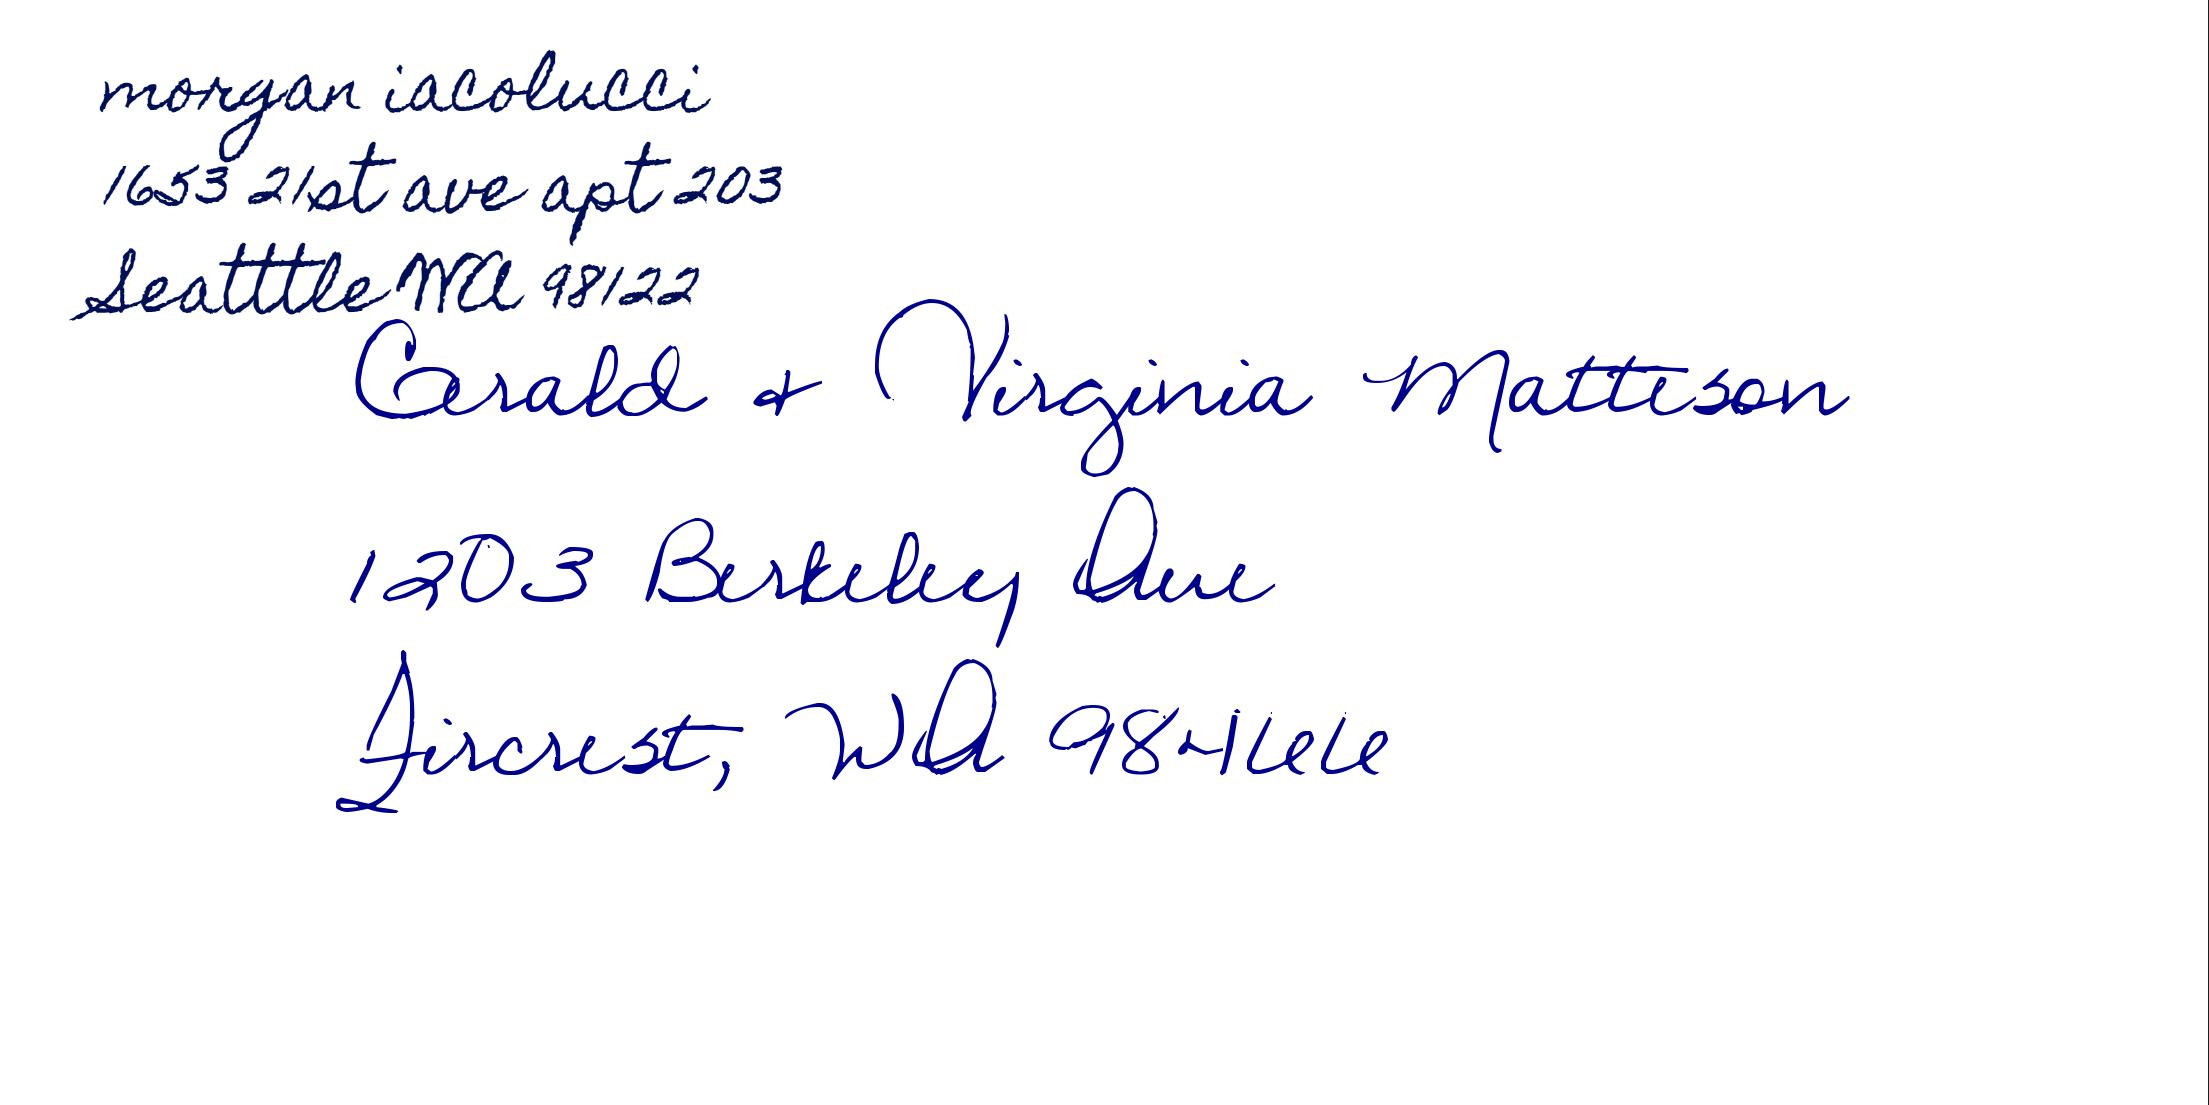 morgan iacolucci
1653 21st ave apt 203
Seatttle WA 98122
Gerald & Virginia Matteson
1203 Berkeley Ave
Fircrest, WA 98466